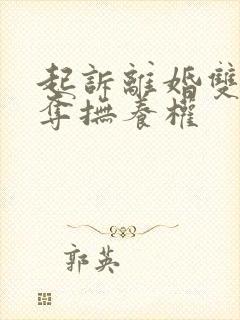 起訴離婚雙
奪撫養權
郭英